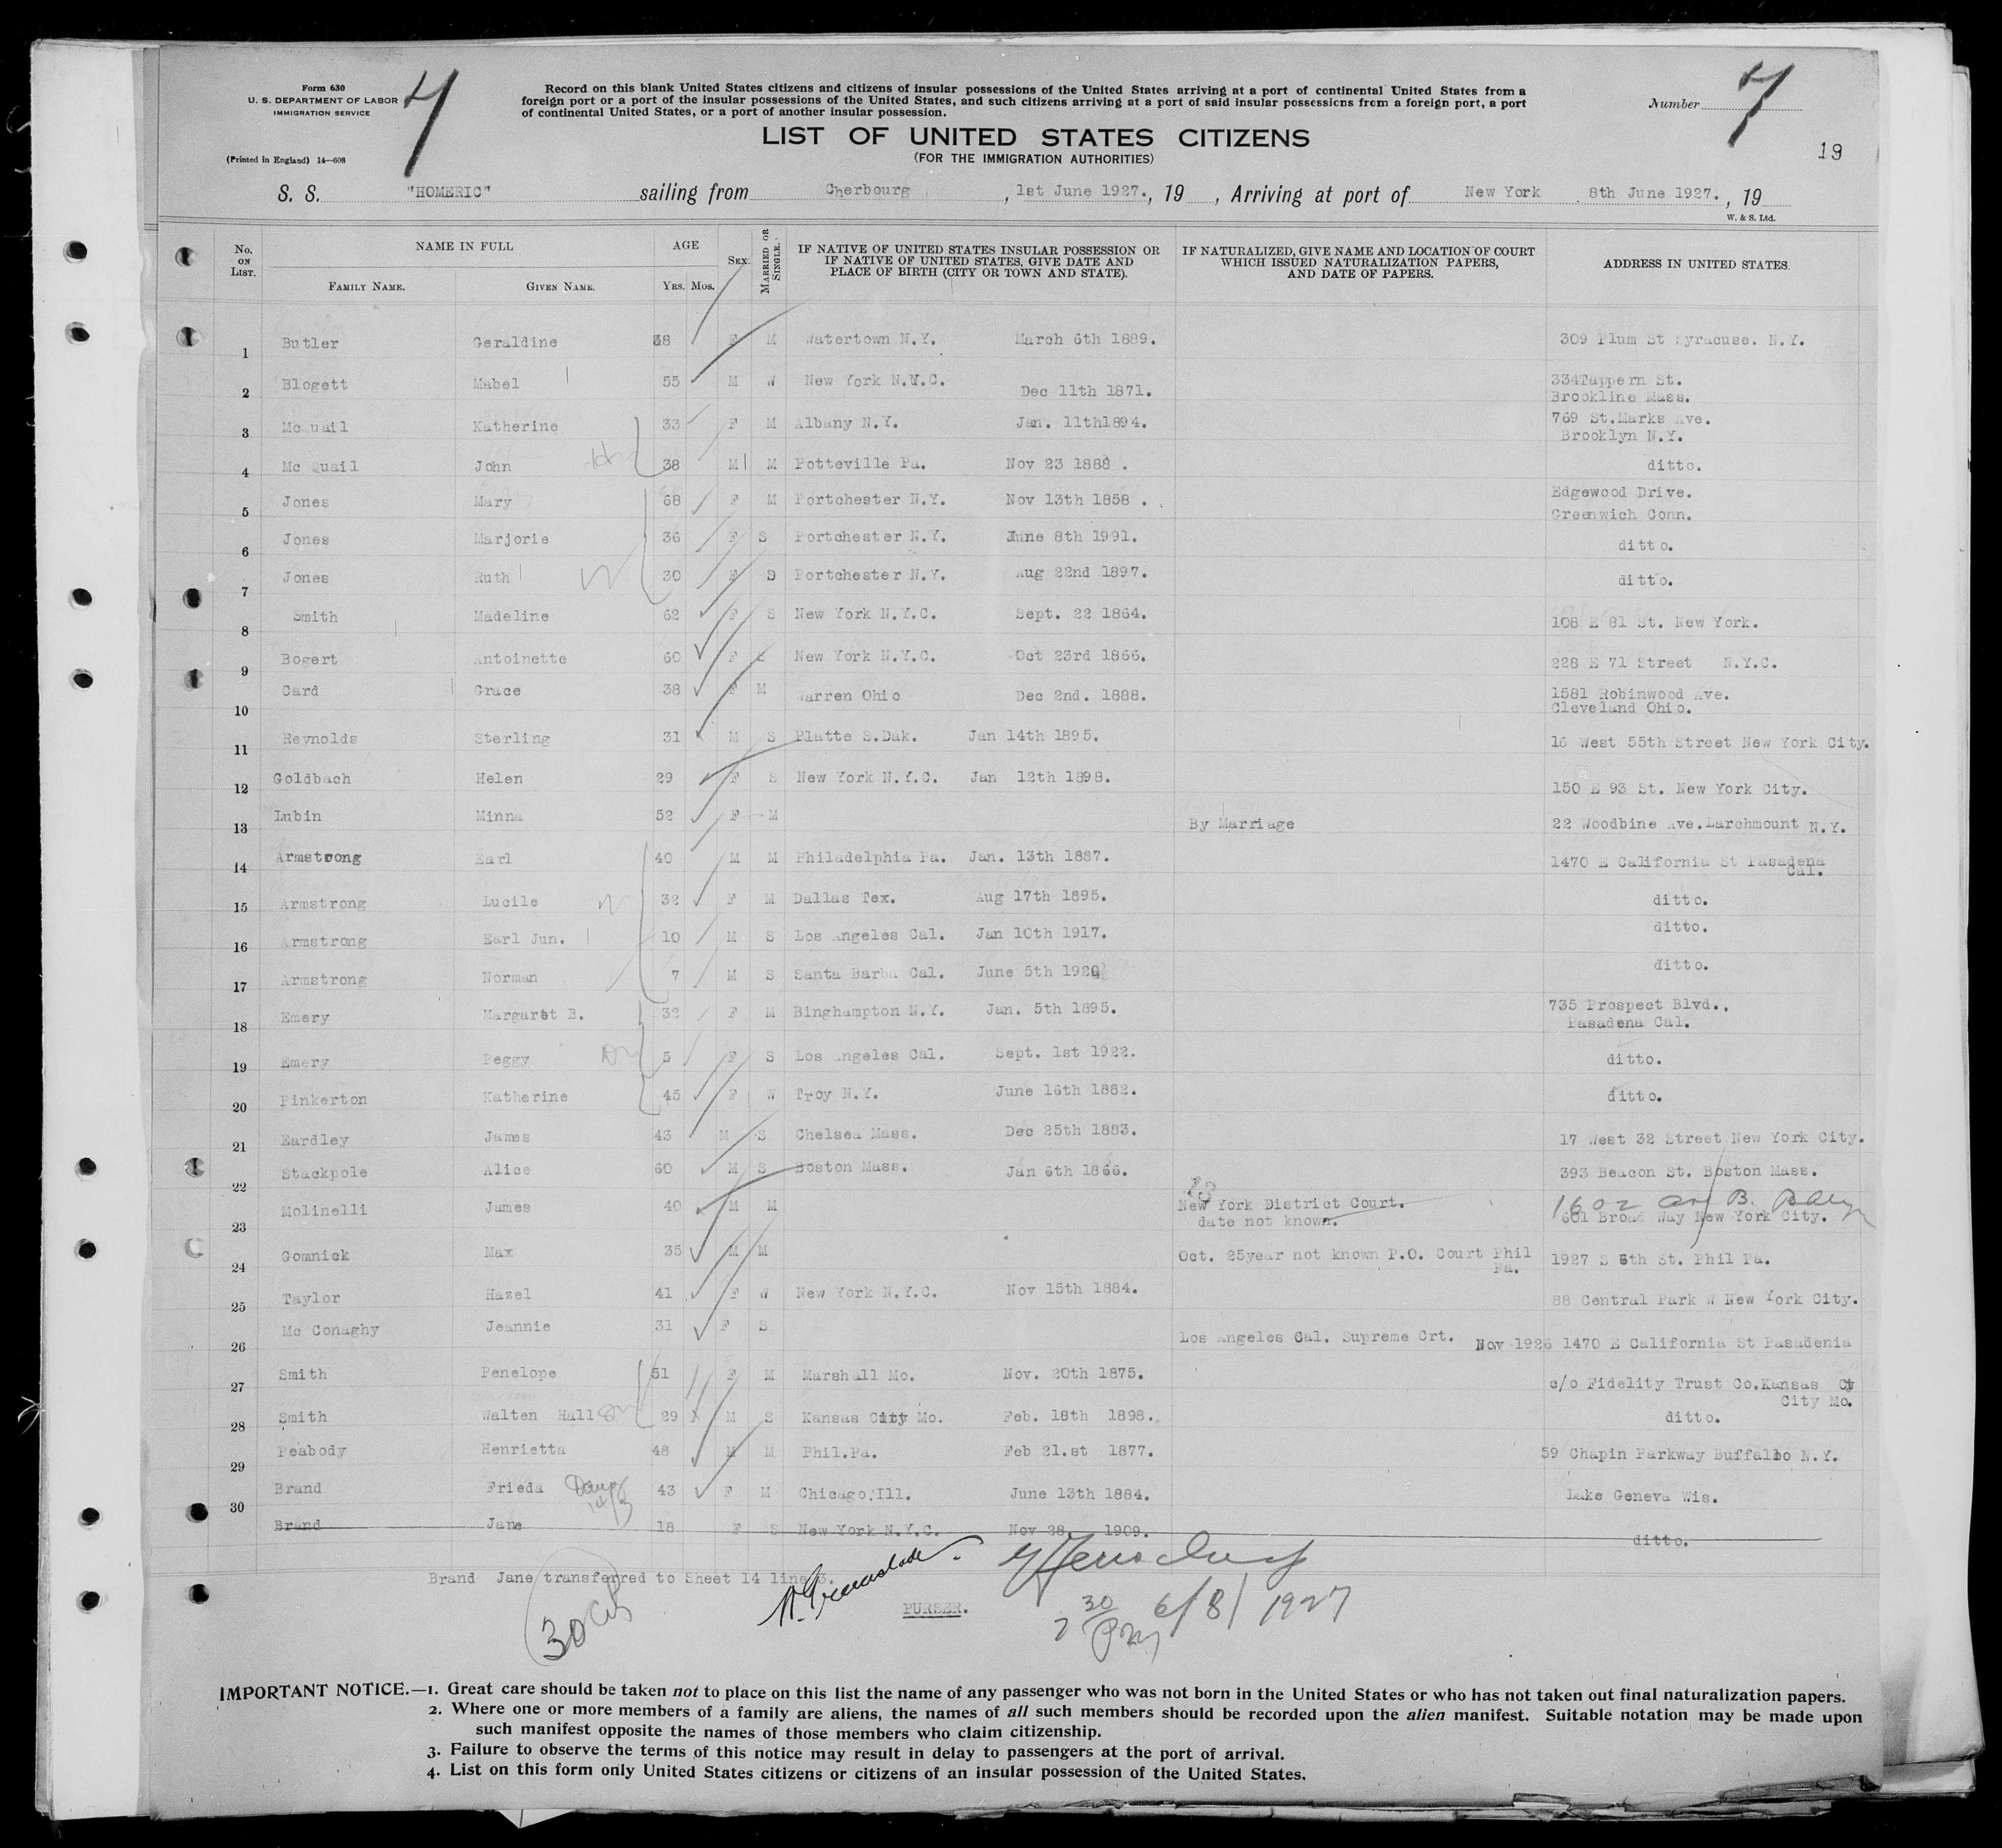 Form 630
U. S. DEPARTMENT OF LABOR
IMMIGRATION SERVICE
(Printed in England) 14—608
4
Record on this blank United States citizens and citizens of insular possessions of the United States arriving at a port of continental United States from a
foreign port or a port of the insular possessions of the United States, and such citizens arriving at a port of said insular possessions from a foreign port, a port
of continental United States, or a port of another insular possession.
Number 7
LIST OF UNITED STATES CITIZENS
(FOR THE IMMIGRATION AUTHORITIES)
19
S. S. "HOMERIC" sailing from Cherbourg , 1st June 1927. , 19 , Arriving at port of New York 8th June 1927. , 19
W. & S. Ltd.
No. ON LIST. NAME IN FULL FAMILY NAME. GIVEN NAME. AGE YRS. MOS. SEX. MARRIED OR SINGLE. IF NATIVE OF UNITED STATES INSULAR POSSESSION OR IF NATIVE OF UNITED STATES, GIVE DATE AND PLACE OF BIRTH (CITY OR TOWN AND STATE). IF NATURALIZED, GIVE NAME AND LOCATION OF COURT WHICH ISSUED NATURALIZATION PAPERS, AND DATE OF PAPERS. ADDRESS IN UNITED STATES.
1 Butler Geraldine 38 F M Watertown N.Y. March 6th 1889. 309 Plum St Syracuse. N.Y.
2 Blogett Mabel 55 M W New York N.Y.C. Dec 11th 1871. 334Tappern St. Brookline Mass.
3 McQuail Katherine 33 F M Albany N.Y. Jan. 11th1894. 769 St.Marks Ave. Brooklyn N.Y.
4 Mc Quail John 38 M M Potteville Pa. Nov 23 1888 . ditto.
5 Jones Mary 68 F M Portchester N.Y. Nov 13th 1858 . Edgewood Drive. Greenwich Conn.
6 Jones Marjorie 36 F S Portchester N.Y. June 8th 1991. ditto.
7 Jones Ruth 30 F D Portchester N.Y. Aug 22nd 1897. ditto.
8 Smith Madeline 62 F S New York N.Y.C. Sept. 22 1864. 108 E 81 St. New York.
9 Bogert Antoinette 60 F S New York N.Y.C. Oct 23rd 1866. 228 E 71 Street N.Y.C.
10 Card Grace 38 F M Warren Ohio Dec 2nd. 1888. 1581 Robinwood Ave. Cleveland Ohio.
11 Reynolds Sterling 31 M S Platte S.Dak. Jan 14th 1895. 16 West 55th Street New York City.
12 Goldbach Helen 29 F S New York N.Y.C. Jan 12th 1898. 150 E 93 St. New York City.
13 Lubin Minna 52 F M By Marriage 22 Woodbine Ave.Larchmount N.Y.
14 Armstrong Earl 40 M M Philadelphia Pa. Jan. 13th 1887. 1470 E California St Pasadena Cal.
15 Armstrong Lucile 32 F M Dallas Tex. Aug 17th 1895. ditto.
16 Armstrong Earl Jun. 10 M S Los Angeles Cal. Jan 10th 1917. ditto.
17 Armstrong Norman 7 M S Santa Barba Cal. June 5th 1920 ditto.
18 Emery Margaret B. 32 F M Binghampton N.Y. Jan. 5th 1895. 735 Prospect Blvd., Pasadena Cal.
19 Emery Peggy 5 F S Los Angeles Cal. Sept. 1st 1922. ditto.
20 Pinkerton Katherine 45 F W Troy N.Y. June 16th 1882. ditto.
21 Eardley James 43 M S Chelsea Mass. Dec 25th 1883. 17 West 32 Street New York City.
22 Stackpole Alice 60 M S Boston Mass. Jan 6th 1866. 393 Beacon St. Boston Mass.
23 Molinelli James 40 M M New York District Court. date not known. 1602 Av B. 601 Broad Way New York City.
24 Gomnick Max 35 M M Oct. 25year not known P.O. Court Phil Pa. 1927 S 6th St. Phil Pa.
25 Taylor Hazel 41 F W New York N.Y.C. Nov 15th 1884. 88 Central Park W New York City.
26 Mc Conaghy Jeannie 31 F S Los Angeles Cal. Supreme Crt. Nov 1926 1470 E California St Pasadenia
27 Smith Penelope 51 F M Marshall Mo. Nov. 20th 1875. c/o Fidelity Trust Co.Kansas City Mo.
28 Smith Walten Hall 29 M S Kansas City Mo. Feb. 18th 1898. ditto.
29 Peabody Henrietta 48 M M Phil.Pa. Feb 21.st 1877. 59 Chapin Parkway Buffallo N.Y.
30 Brand Frieda 43 F M Chicago,Ill. June 13th 1884. Lake Geneva Wis.
Brand Jane 18 F S New York N.Y.C. Nov 28 1909. ditto.
Brand Jane transferred to Sheet 14 line 3.
PURSER.
7 30 PM 6/8/1927
IMPORTANT NOTICE.—1. Great care should be taken not to place on this list the name of any passenger who was not born in the United States or who has not taken out final naturalization papers.
2. Where one or more members of a family are aliens, the names of all such members should be recorded upon the alien manifest. Suitable notation may be made upon
such manifest opposite the names of those members who claim citizenship.
3. Failure to observe the terms of this notice may result in delay to passengers at the port of arrival.
4. List on this form only United States citizens or citizens of an insular possession of the United States.